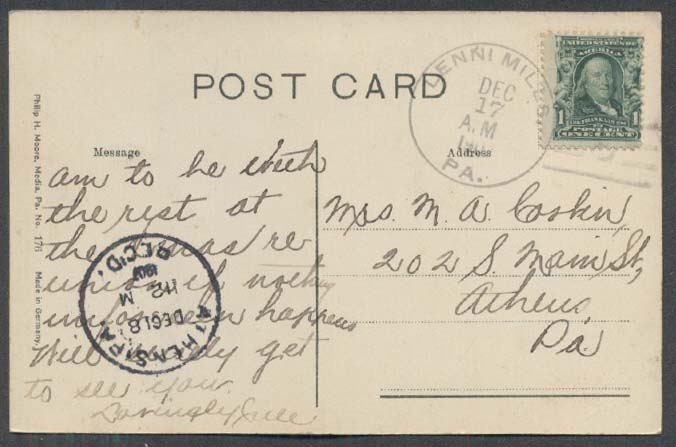 POST CARD
Message
Address
JENNI MILLS
DEC
17
A.M
PA.
UNITED STATES OF
AMERICA
1 1
FRANKLIN
POSTAGE
ONE CENT
Philip H. Moore, Media, Pa. No. 176 Made in Germany.
am to be with
the rest at
the Xmas re
union if nothing
unforseen happens
Will get
to see you.
Lovingly
ATHENS, PA.
DEC 18
M
1907
REC'D.
Mrs. M. A. Corbin
202 S. Main St,
Athens
Pa